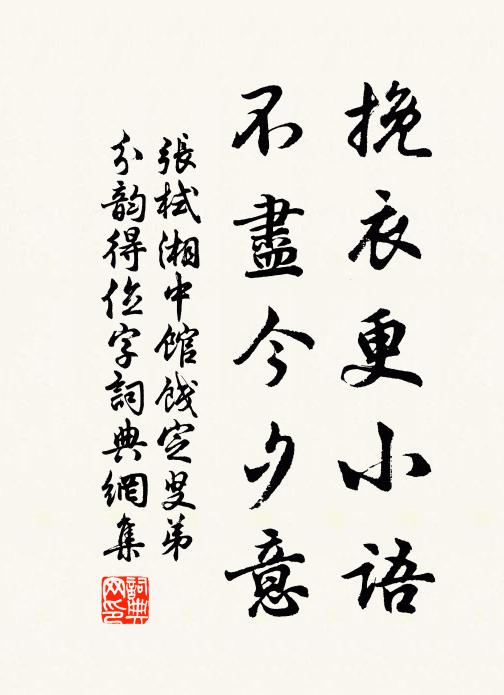 挽衣更小語
不盡今夕意
張栻湘中館餞定叟弟
分韵得位字詞典網集
詞典网印